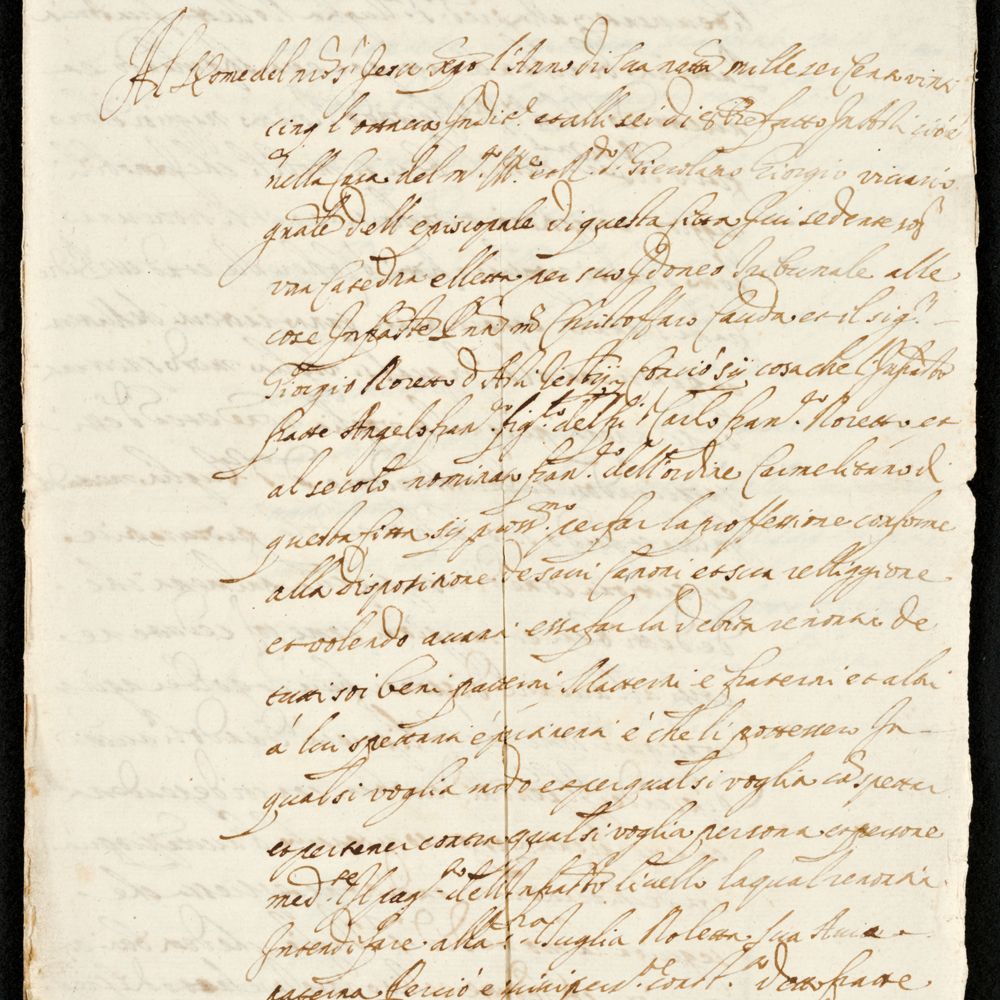 Al Nome del nro s.r Jesu Xpo l'Anno di sua nattà mille sei Cento vinti
cinq l'ottava Indit.e et alli sei di 8bre fatto In Asti cioè
nella Casa del m.to Ill.re et R.do Giorgio vicario
gnāle dell'episcopale di questa Città Ivi sedente sop.a
una Catedra elletta per suo Idoneo tribunale alle
cose Infratte p̄nti Christoffaro Cauda et il sig.r
Giorgio Roretto d'Asti testij Perciò sij cosa che l'Infratto
fratte Angelo fran.co fig.lo del Carlo fran.co Roretto et
al secolo nominato fran.co dell'ordine Carmelitano di
questa Città sij pross.mo per far la proffessione conforme
alla dispositione de sacri Canoni et sua relliggione
et volendo avanti essa far la debita renontia de
tutti soi beni patterni Matterni e fraterni et altri
à lui spettanti è che li pottessero In
qualsi voglia modo et per qualsi voglia cā spettar
et pertener contra qualsi voglia persona et persone
med.te Il dell'Infratto livello la qual renontia
Intendi fare alla Roletta sua Avia
paterna Perciò è detto fratte